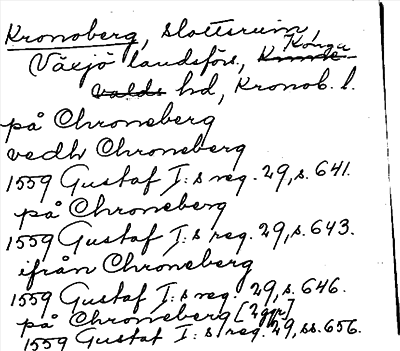 Kronoberg, slottsruin,
Växjö landsförs., Konga
hd, Kronob. l.
på Chroneberg
vedh Chroneberg
1559 Gustaf I:s reg. 29, s. 641.
på Chroneberg
1559 Gustaf I:s reg. 29, s. 643.
ifrån Chroneberg
1559 Gustaf I:s reg. 29, s. 646.
på Chroneberg [2 ggr]
1559 Gustaf I:s reg. 29, ss. 656.